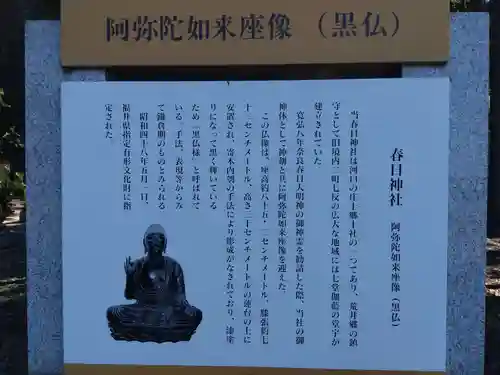 阿弥陀如来座像（黒仏）
春日神社　阿弥陀如来座像（黒仏）
当春日神社は河口の庄十郷十社の一つであり、荒井郷の鎮
守として旧境内二町七反の広大な地域には七堂伽藍の堂宇が
建立されていた。
寛弘八年奈良春日大明神の御神霊を勧請した際、当社の御
神体として神剣と共に阿弥陀如来座像を迎えた。
この仏像は、座高約八十五・二センチメートル、膝張約七
十一センチメートル、高さ二十センチメートルの蓮台の上に
安置され、寄木内刳の手法により形成がなされており、漆塗
りになって黒く輝いている
ため「黒仏様」と呼ばれて
いる。手法、表現等からみ
て鎌倉期のものとみられる
昭和四十八年五月一日、
福井県指定有形文化財に指
定された。